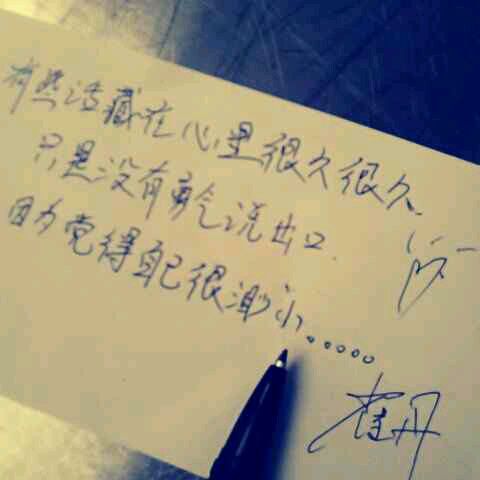 有些话藏在心里很久很久、
只是没有勇气说出口.
因为觉得自己很渺小。。。。。
崔丹